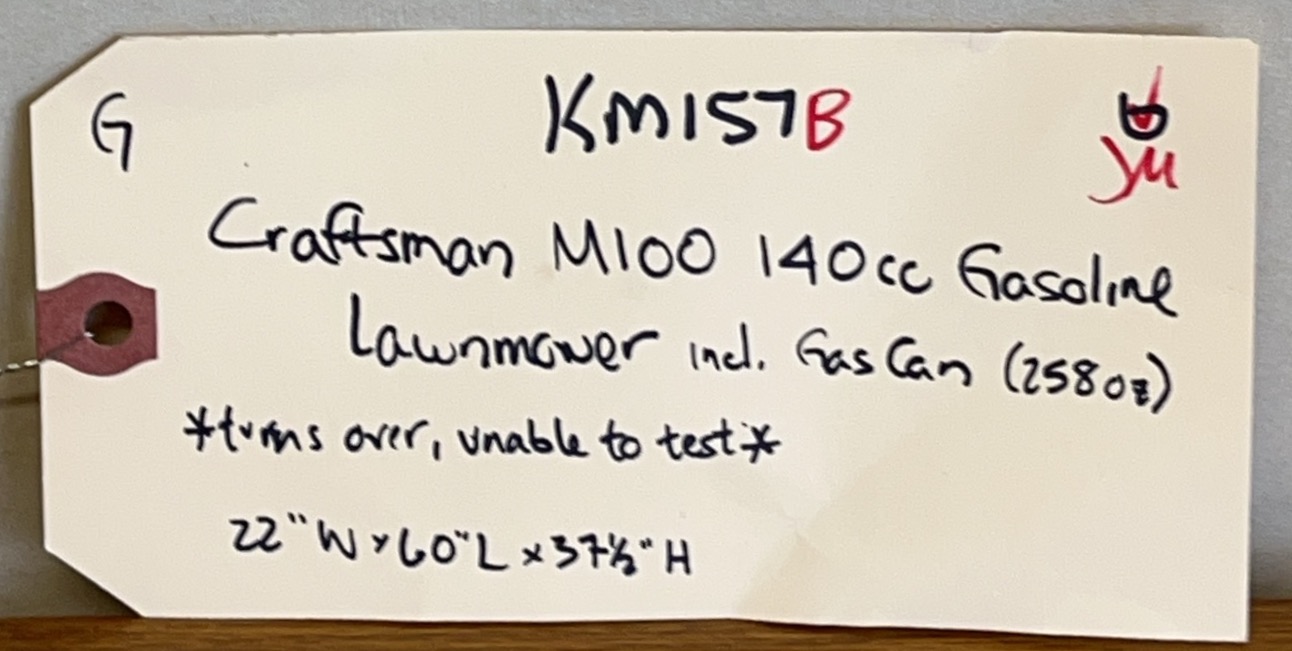 G
KM157B
yu
Craftsman M100 140cc Gasoline
Lawnmower incl. Gas Can (258oz)
*turns over, unable to test*
22"W x 60"L x 37½"H